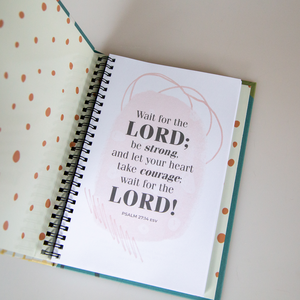 Wait for the
LORD;
be strong,
and let your heart
take courage;
wait for the
LORD!
PSALM 27:14 ESV